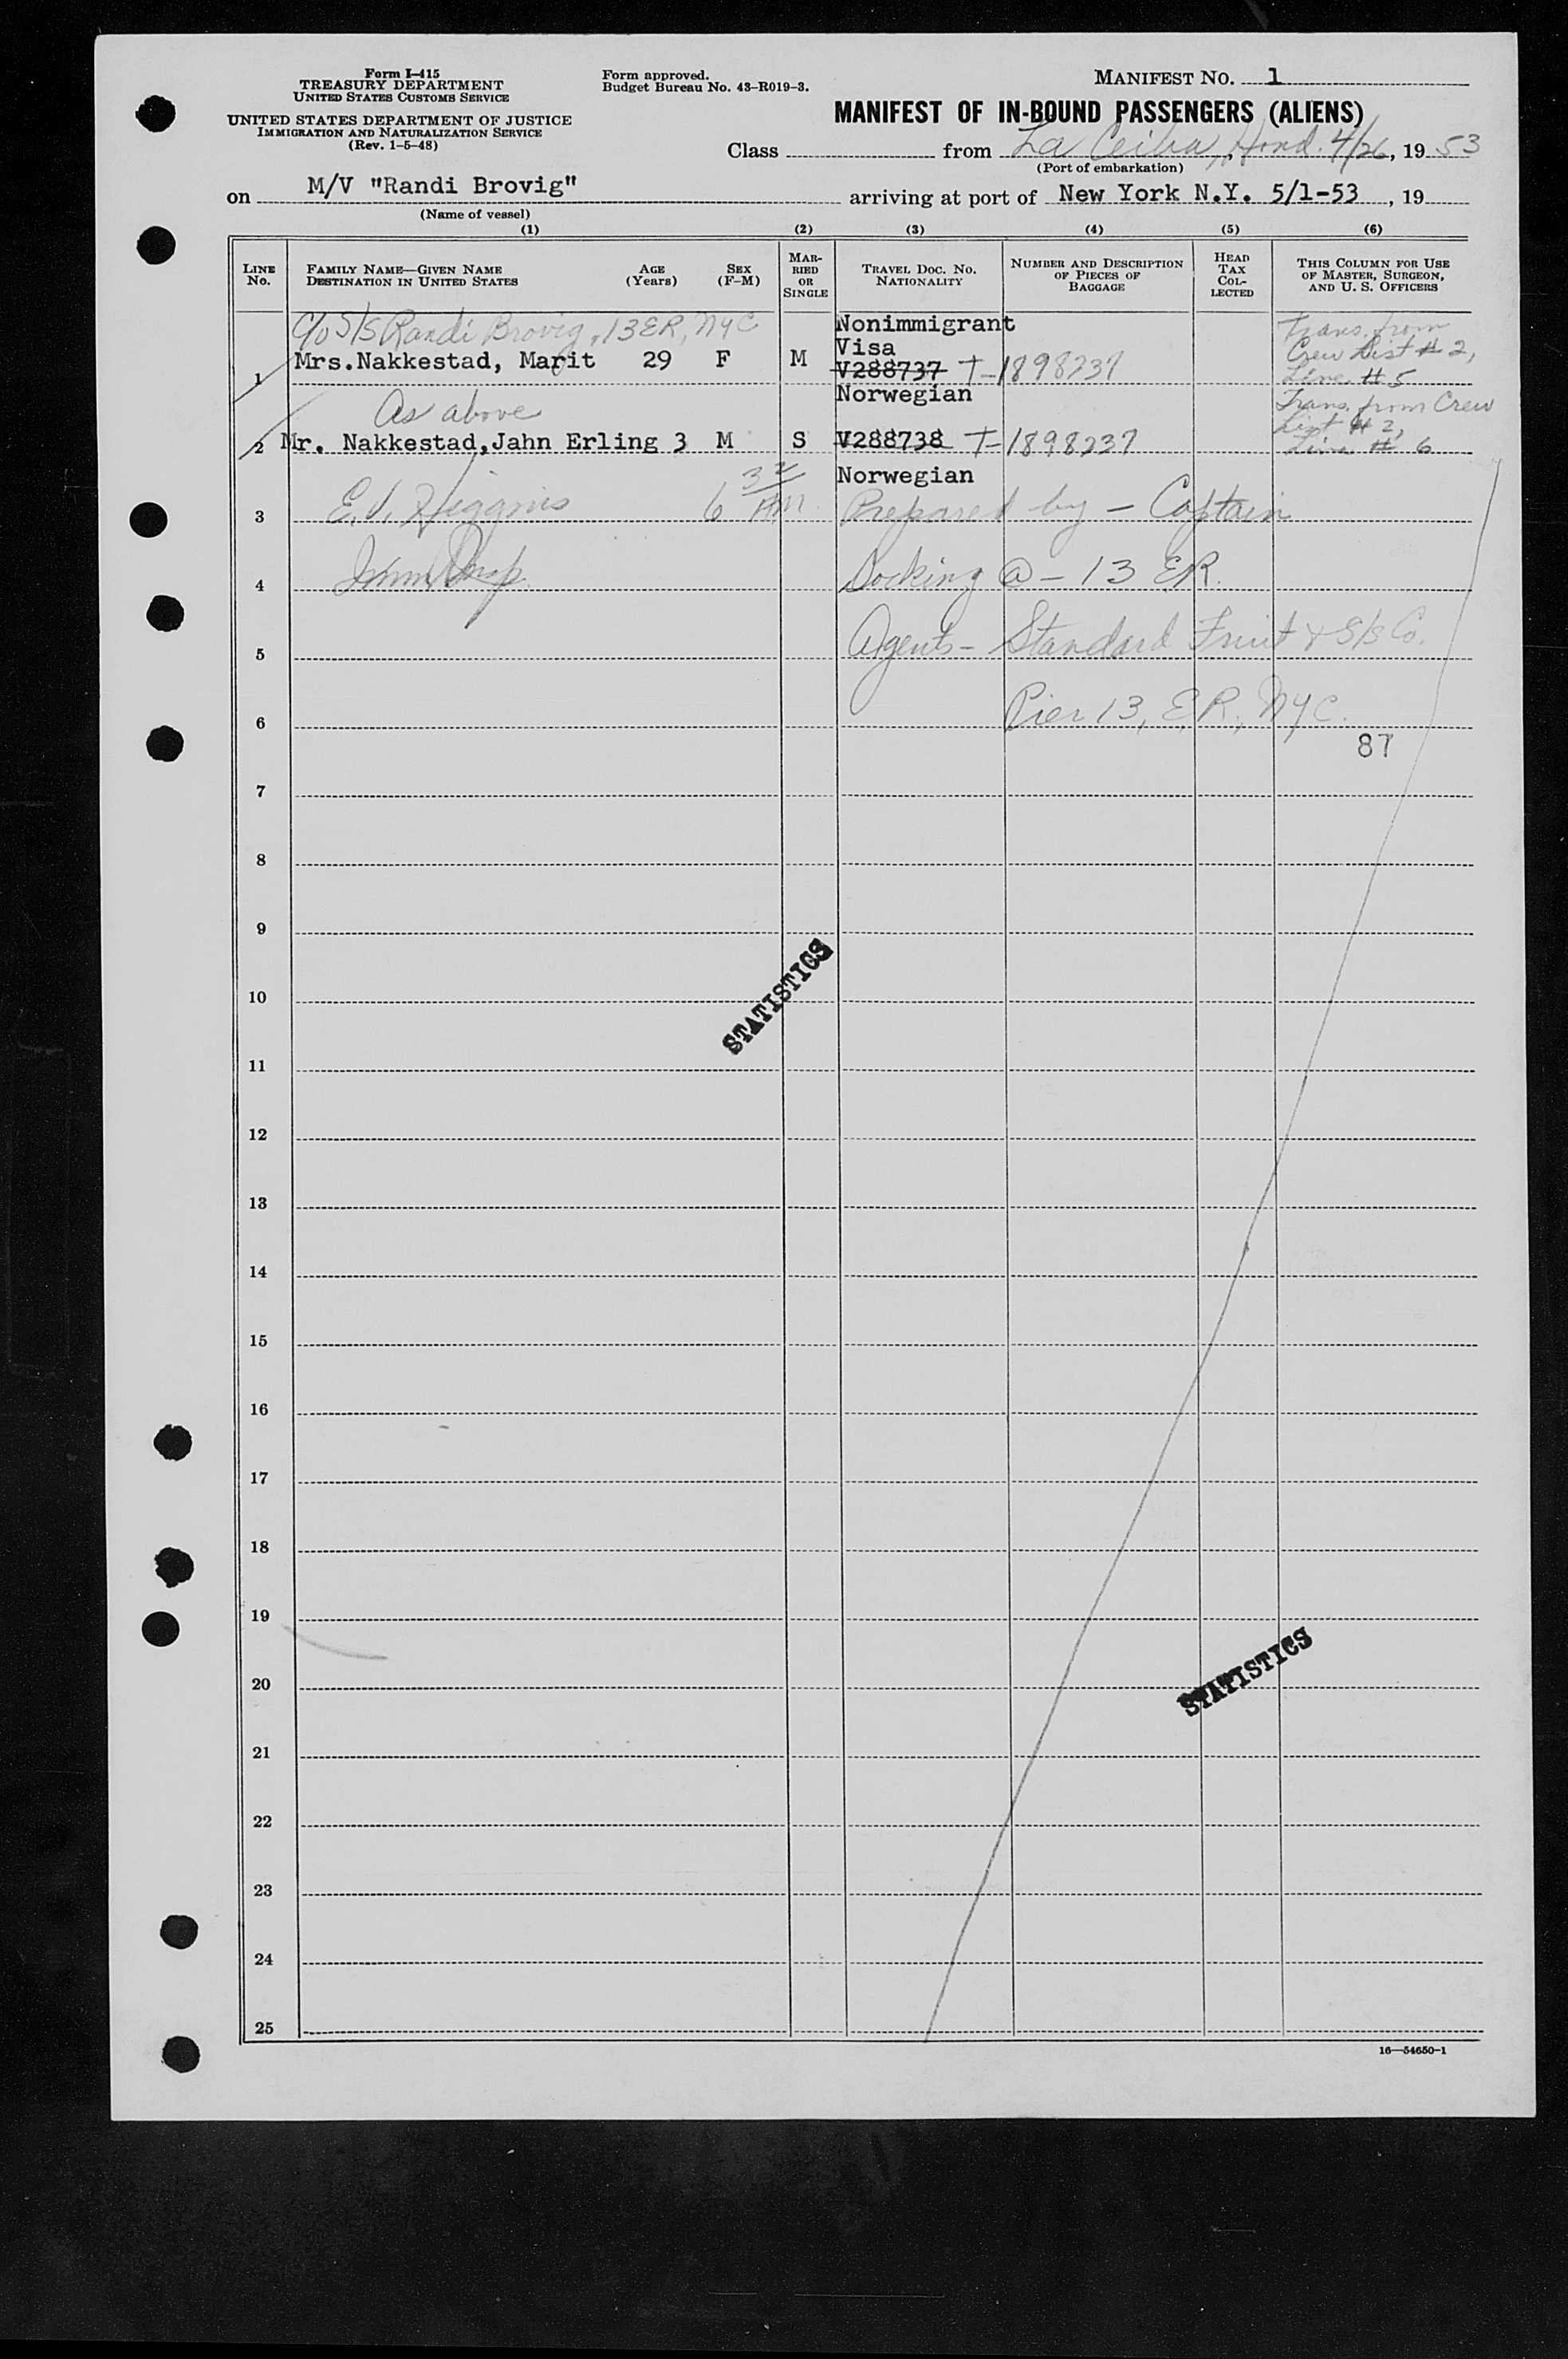 Form I-415
TREASURY DEPARTMENT
UNITED STATES CUSTOMS SERVICE
UNITED STATES DEPARTMENT OF JUSTICE
IMMIGRATION AND NATURALIZATION SERVICE
(Rev. 1-5-48)
Form approved.
Budget Bureau No. 43-R019-3.
MANIFEST NO. 1
MANIFEST OF IN-BOUND PASSENGERS (ALIENS)
Class from La Ceiba, Hond. 4/26, 19 53
(Port of embarkation)
on M/V "Randi Brovig" arriving at port of New York N.Y. 5/1-53, 19
(Name of vessel)
(1) (2) (3) (4) (5) (6)
LINE NO.
FAMILY NAME—GIVEN NAME
DESTINATION IN UNITED STATES
AGE (YEARS)
SEX (F-M)
MARRIED OR SINGLE
TRAVEL DOC. NO.
NATIONALITY
NUMBER AND DESCRIPTION OF PIECES OF BAGGAGE
HEAD TAX COLLECTED
THIS COLUMN FOR USE OF MASTER, SURGEON, AND U. S. OFFICERS
C/o S/S Randi Brovig, 13 ER, NYC Nonimmigrant Trans. from
Visa Crew List # 2,
1 Mrs.Nakkestad, Marit 29 F M V288737 T-1898237 Line # 5
As above Norwegian Trans. from Crew
List # 2,
2 Mr. Nakkestad,Jahn Erling 3 M S V288738 T-1898237 Line # 6
Norwegian
3 E.V. Higgins 6 32 AM Prepared by - Captain
4 Imm Insp. Docking @ - 13 ER.
5 Agents - Standard Fruit & S/S Co.
6 Pier 13, E.R., NYC.
87
7
8
9
STATISTICS
10
11
12
13
14
15
16
17
18
19
STATISTICS
20
21
22
23
24
25
16—54650-1